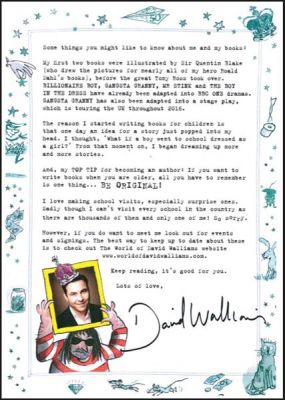 Some things you might like to know about me and my books!
My first two books were illustrated by Sir Quentin Blake
(who drew the pictures for nearly all of my hero Roald
Dahl's books), before the great Tony Ross took over.
BILLIONAIRE BOY, GANGSTA GRANNY, MR STINK and THE BOY
IN THE DRESS have already been adapted into BBC ONE dramas.
GANGSTA GRANNY has also been adapted into a stage play,
which is touring the UK throughout 2016.
The reason I started writing books for children is
that one day an idea for a story just popped into my
head. I thought, 'What if a boy went to school dressed as
a girl?' From that moment on, I began dreaming up more
and more stories.
And, my TOP TIP for becoming an author! If you want to
write books when you are older, all you have to remember
is one thing... BE ORIGINAL!
I love making school visits, especially surprise ones.
Sadly though I can't visit every school in the country as
there are thousands of them and only one of me! So sorry.
However, if you do want to meet me look out for events
and signings. The best way to keep up to date about these
is to check out The World of David Walliams website
www.worldofdavidwalliams.com.
Keep reading, it's good for you.
Lots of love,
David Walliams